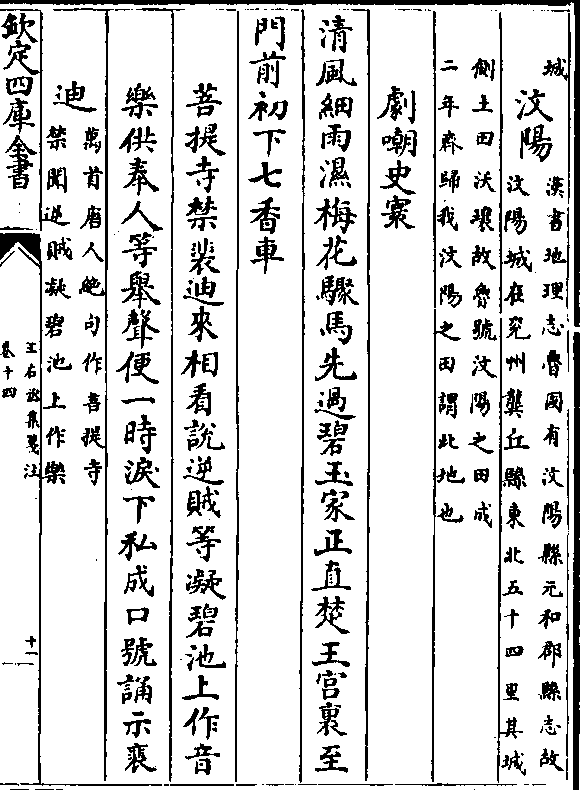 城
汶陽
漢書地理志魯國有汶陽縣元和郡縣志故
汶陽城在兖州龔丘縣東北五十四里其城
側土田沃壤故魯號汶陽之田成
二年齊歸我汶陽之田謂此地也
劇嘲史寰
清風細雨濕梅花驟馬先過碧玉家正直楚王宫裏至
門前初下七香車
菩提寺禁裴迪來相看說逆賊等凝碧池上作音
樂供奉人等舉聲便一時淚下私成口號誦示裴
迪
萬首唐人絶句作菩提寺
禁聞逆賊凝碧池上作樂
欽定四庫全書
王右丞集箋注
卷十四
十一